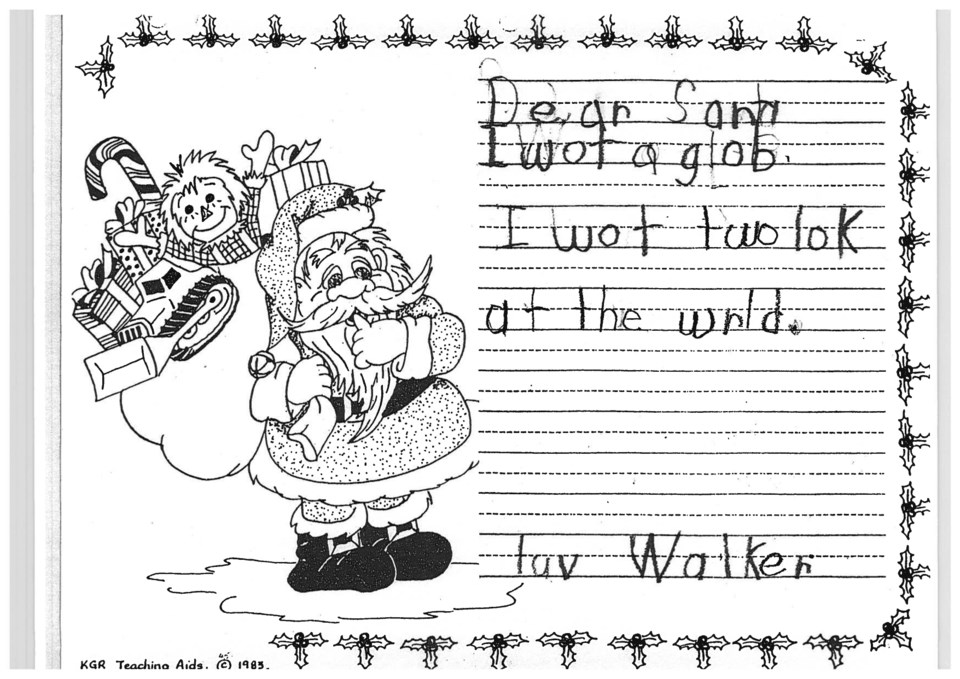 Dear Santa
I wot a glob.
I wot two lok
at the wrld.
luv Walker
KGR Teaching Aids. © 1985.